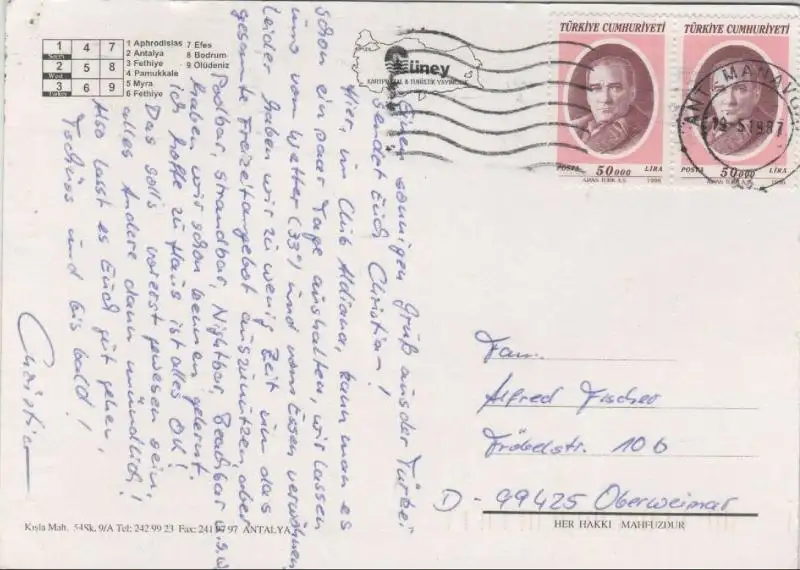 1 4 7
2 5 8
3 6 9
1 Aphrodisias
2 Antalya
3 Fethiye
4 Pamukkale
5 Myra
6 Fethiye
7 Efes
8 Bodrum
9 Ölüdeniz
Güney
KARTPOSTAL & TURİSTİK YAYINCILIK
TÜRKİYE CUMHURİYETİ
POSTA 50000 LİRA
AJANS TÜRK A.Ş. 1996
TÜRKİYE CUMHURİYETİ
POSTA 50000 LİRA
AJANS TÜRK A.Ş. 1996
MANAVGAT
5 1997
Einen sonnigen Gruß aus der Türkei
sendet Euch Christian!
Hier, im Club Aldiana, kann man es
schon ein paar Tage aushalten, wir lassen
uns vom Wetter (33°) und vom Essen verwöhnen
Leider haben wir zu wenig Zeit um das
gesamte Freizeitangebot auszunützen, aber
Poolbar, Strandbar, Nightbar, Beachbar u.s.w.
haben wir schon kennen gelernt.
Ich hoffe zu Haus ist alles OK!
Das soll's vorerst gewesen sein,
alles Andere dann mündlich!
Also lasst es Euch gut gehen,
Tschüss und bis bald!
Christian
Fam.
Alfred Fischer
Fröbelstr. 10b
D - 99425 Oberweimar
Kışla Mah. 54Sk. 9/A Tel: 242 99 23 Fax: 241 97 97 ANTALYA
HER HAKKI MAHFUZDUR